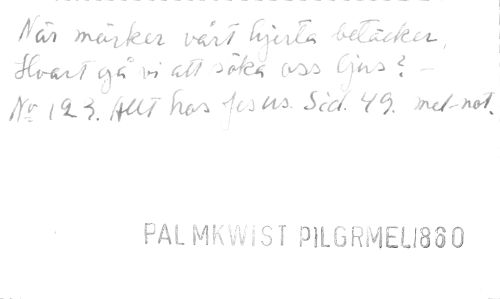 När mörker vårt hjerta betäcker,
Hvart gå vi att söka oss ljus? –
No 123. Allt hos Jesus. Sid. 49. mel-not.
PALMKWIST PILGRMEL1860